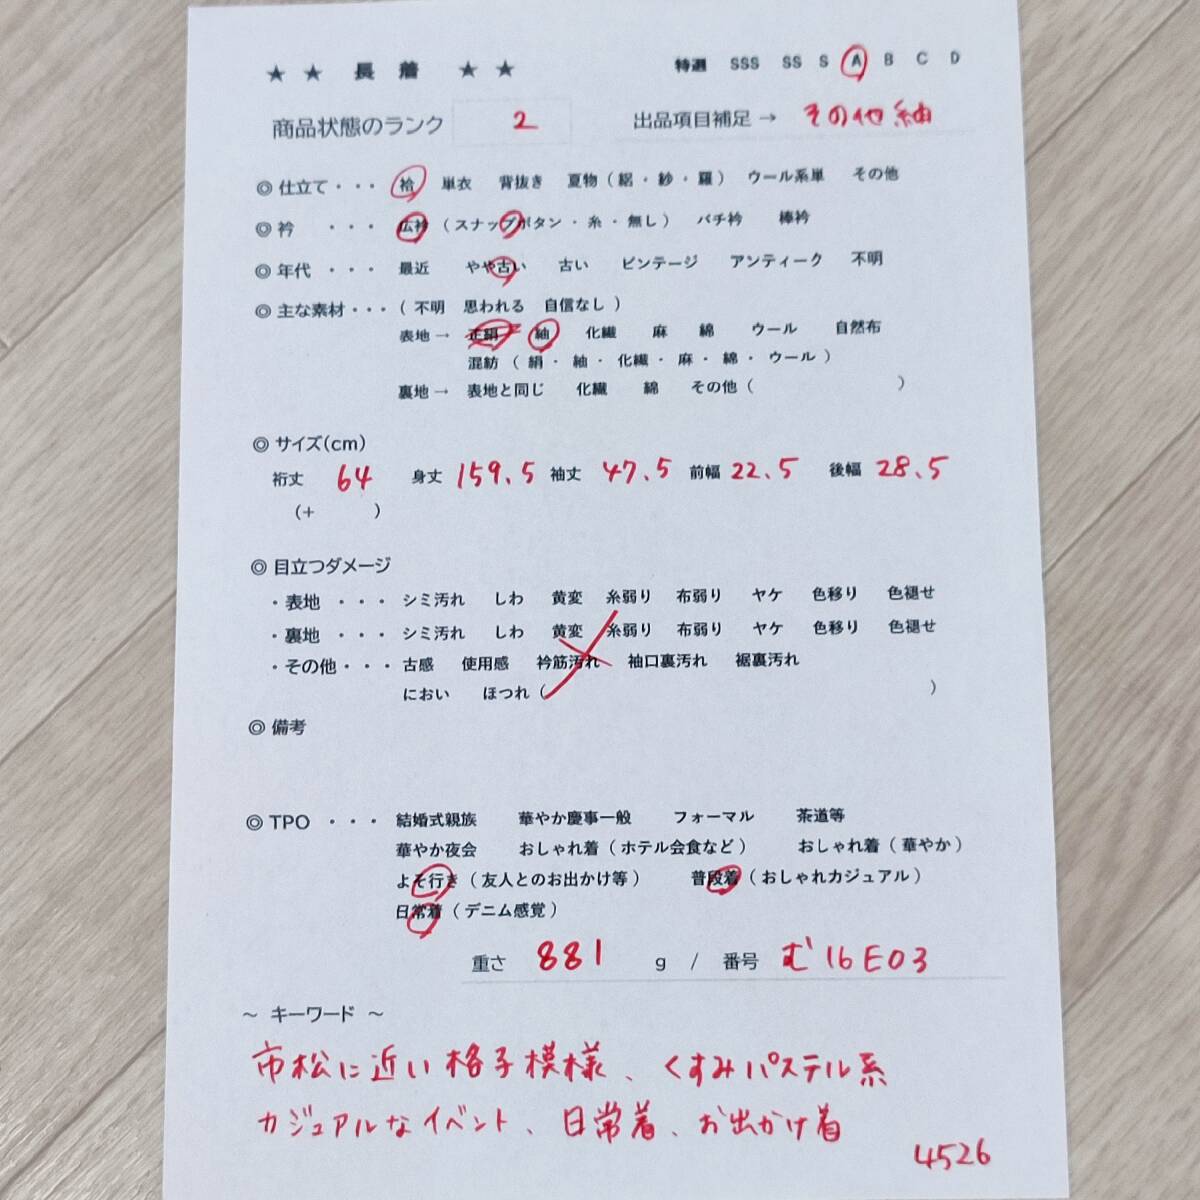 ★ ★ 長 着 ★ ★ 特選 SSS SS S A B C D
商品状態のランク 2 出品項目補足→ その他紬
◎ 仕立て・・・ 袷 単衣 背抜き 夏物(絽・紗・羅) ウール系単 その他
◎ 衿 ・・・ 広衿 (スナップボタン・糸・無し) バチ衿 棒衿
◎ 年代 ・・・ 最近 やや古い 古い ビンテージ アンティーク 不明
◎ 主な素材・・・ (不明 思われる 自信なし)
表地→ 正絹 紬 化繊 麻 綿 ウール 自然布
混紡(絹・紬・化繊・麻・綿・ウール)
裏地→ 表地と同じ 化繊 綿 その他( )
◎ サイズ(cm)
裄丈 64 身丈 159.5 袖丈 47.5 前幅 22.5 後幅 28.5
(+ )
◎ 目立つダメージ
・表地 ・・・ シミ汚れ しわ 黄変 糸弱り 布弱り ヤケ 色移り 色褪せ
・裏地 ・・・ シミ汚れ しわ 黄変 糸弱り 布弱り ヤケ 色移り 色褪せ
・その他・・・ 古感 使用感 衿筋汚れ 袖口裏汚れ 裾裏汚れ
におい ほつれ( )
◎ 備考
◎ TPO ・・・ 結婚式親族 華やか慶事一般 フォーマル 茶道等
華やか夜会 おしゃれ着(ホテル会食など) おしゃれ着(華やか)
よそ行き(友人とのお出かけ等) 普段着(おしゃれカジュアル)
日常着(デニム感覚)
重さ 881 g / 番号 む16E03
～ キーワード ～
市松に近い格子模様、くすみパステル系
カジュアルなイベント、日常着、お出かけ着
4526